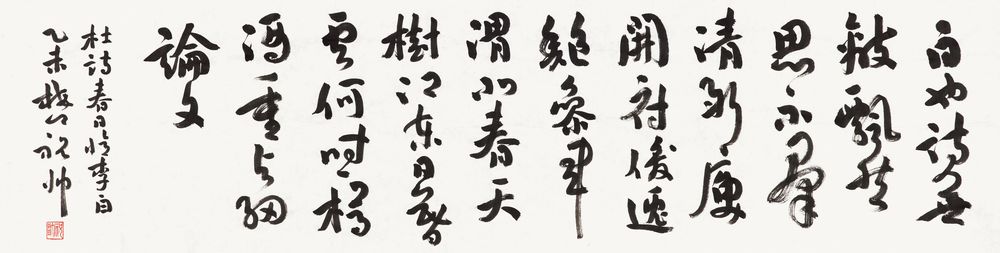 白也詩無
敵飄然
思不群
清新庾
開府俊逸
鮑參軍
渭北春天
樹江東日暮
雲何時樽
酒重与細
論文
杜詩春日憶李白
乙未梅祝帅